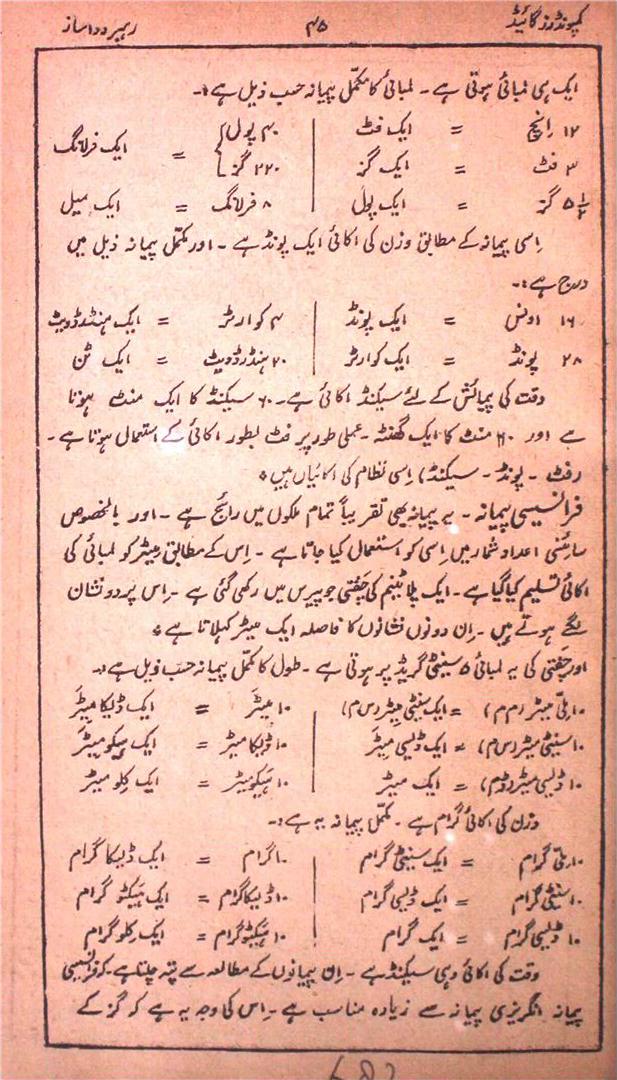 کمپونڈرز گائیڈ ۴۵ رہبر دوا ساز
ایک ہی لمبائی ہوتی ہے۔ لمبائی کا مکمل پیمانہ حسب ذیل ہے:۔
۱۲ اِنچ = ایک فٹ | ۴۰ پول
۳ فٹ = ایک گز | ۲۲۰ گز } = ایک فرلانگ
۵½ گز = ایک پول | ۸ فرلانگ = ایک میل
اِسی پیمانہ کے مطابق وزن کی اکائی ایک پونڈ ہے۔ اور مکمّل پیمانہ ذیل میں
درج ہے:۔
۱۶ اونس = ایک پونڈ | ۴ کوارٹر = ایک ہنڈرڈویٹ
۲۸ پونڈ = ایک کوارٹر | ۲۰ ہنڈرڈویٹ = ایک ٹن
وقت کی پیمائش کے لئے سیکنڈ اکائی ہے۔ ۶۰ سیکنڈ کا ایک منٹ ہوتا
ہے اور ۶۰ منٹ کا ایک گھنٹہ۔ عملی طور پر فٹ بطور اکائی کے استعمال ہوتا ہے۔
(فٹ۔ پونڈ۔ سیکنڈ) اِسی نظام کی اکائیاں ہیں *
فرانسیسی پیمانہ۔ یہ پیمانہ بھی تقریباً تمام ملکوں میں رائج ہے۔ اور بالخصوص
سائنسی اعداد و شمار میں اِسی کو استعمال کیا جاتا ہے۔ اِس کے مطابق میٹر کو لمبائی کی
اکائی تسلیم کیا گیا ہے۔ ایک پلاٹینم کی چفتی جو پیرس میں رکھی گئی ہے۔ اِس پر دو نشان
لگے ہوتے ہیں۔ اِن دونوں نشانوں کا فاصلہ ایک میٹر کہلاتا ہے *
اور چفتی کی یہ لمبائی ۵ سینٹی گریڈ پر ہوتی ہے۔ طول کا مکمّل پیمانہ حسب ذیل ہے:۔
۱۰ مِلّی میٹر (م م) = ایک سنٹی میٹر (س م) | ۱۰ میٹر = ایک ڈیکا میٹر
۱۰ سنٹی میٹر (س م) = ایک ڈیسی میٹر | ۱۰ ڈیکا میٹر = ایک ہیکومیٹر
۱۰ ڈیسی میٹر (ڈ م) = ایک میٹر | ۱۰ ہیکومیٹر = ایک کلو میٹر
وزن کی اکائی گرام ہے۔ مکمّل پیمانہ یہ ہے:۔
۱۰ مِلّی گرام = ایک سنٹی گرام | ۱۰ گرام = ایک ڈیکا گرام
۱۰ سنٹی گرام = ایک ڈیسی گرام | ۱۰ ڈیکا گرام = ایک ہیکٹو گرام
۱۰ ڈیسی گرام = ایک گرام | ۱۰ ہیکٹو گرام = ایک کلو گرام
وقت کی اکائی وہی سیکنڈ ہے۔ اِن پیمانوں کے مطالعہ سے پتہ چلتا ہے کہ فرانسیسی
پیمانہ انگریزی پیمانہ سے زیادہ مناسب ہے۔ اِس کی وجہ یہ ہے کہ گز کے